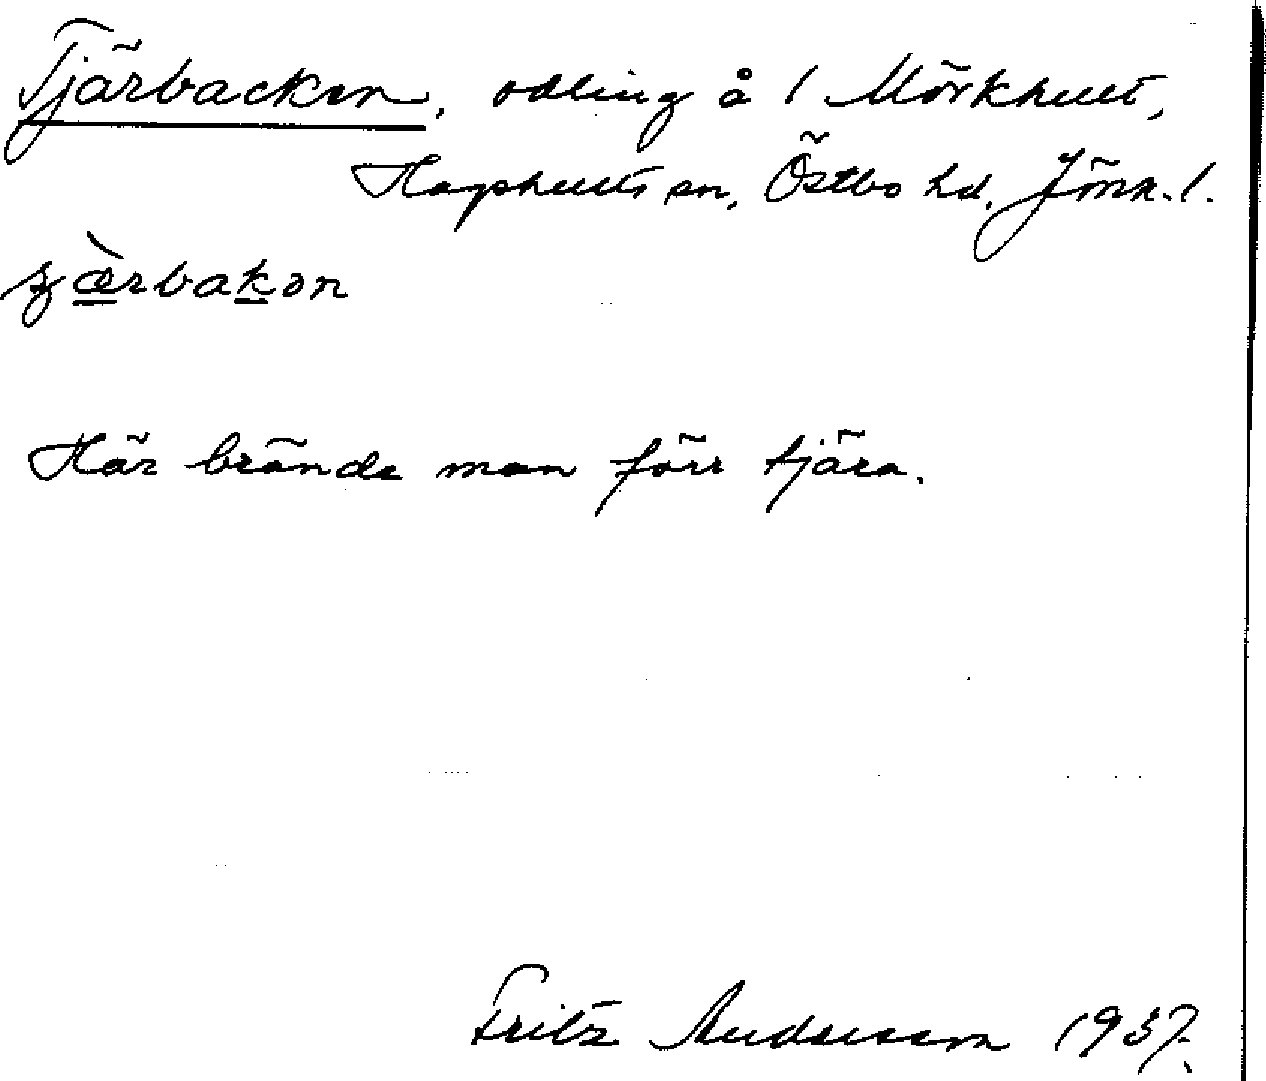 Tjärbacken, odling å 1 Mörkhult,
Hagshults sn, Östbo hd, Jönk. l.
Här brände man förr tjära.
Fritz Andersson 1937.